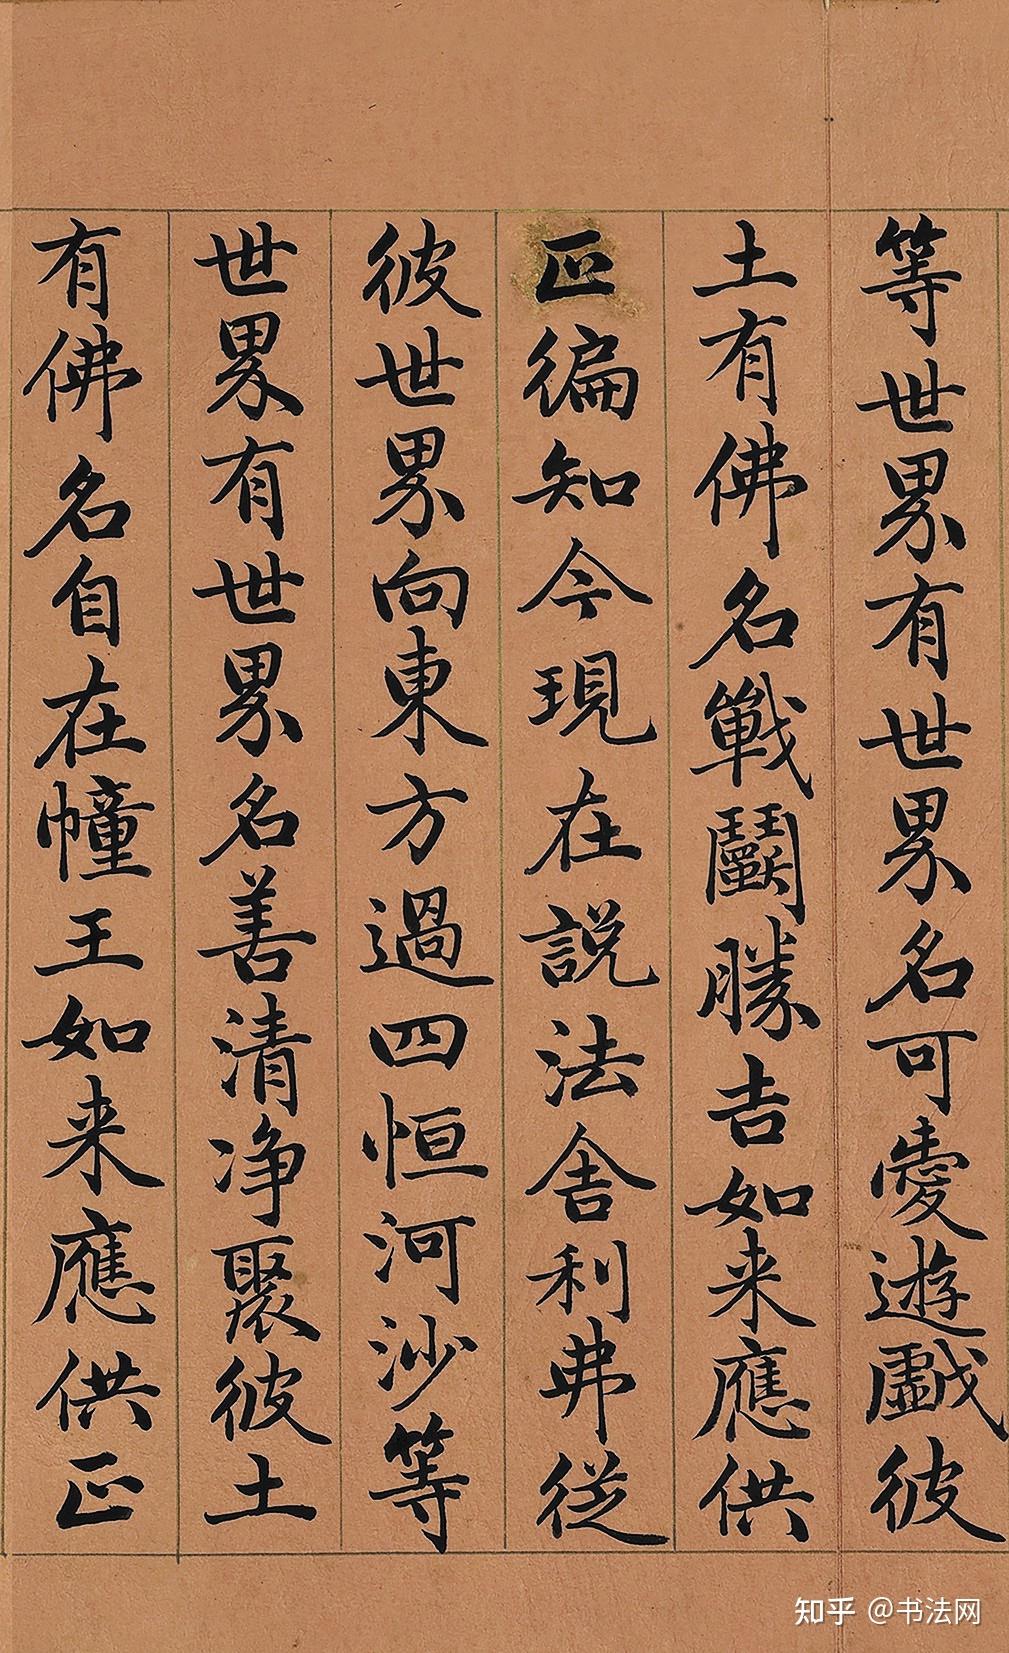 等世界有世界名可愛遊戯彼
土有佛名戰鬭勝吉如来應供
正徧知今現在説法舎利弗従
彼世界向東方過四恒河沙等
世界有世界名善清净聚彼土
有佛名自在幢王如来應供正
知乎 @书法网